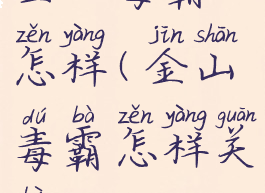 zěn yàng jīn shān
怎样(金山
dú bà zěn yàng guān
毒霸怎样关